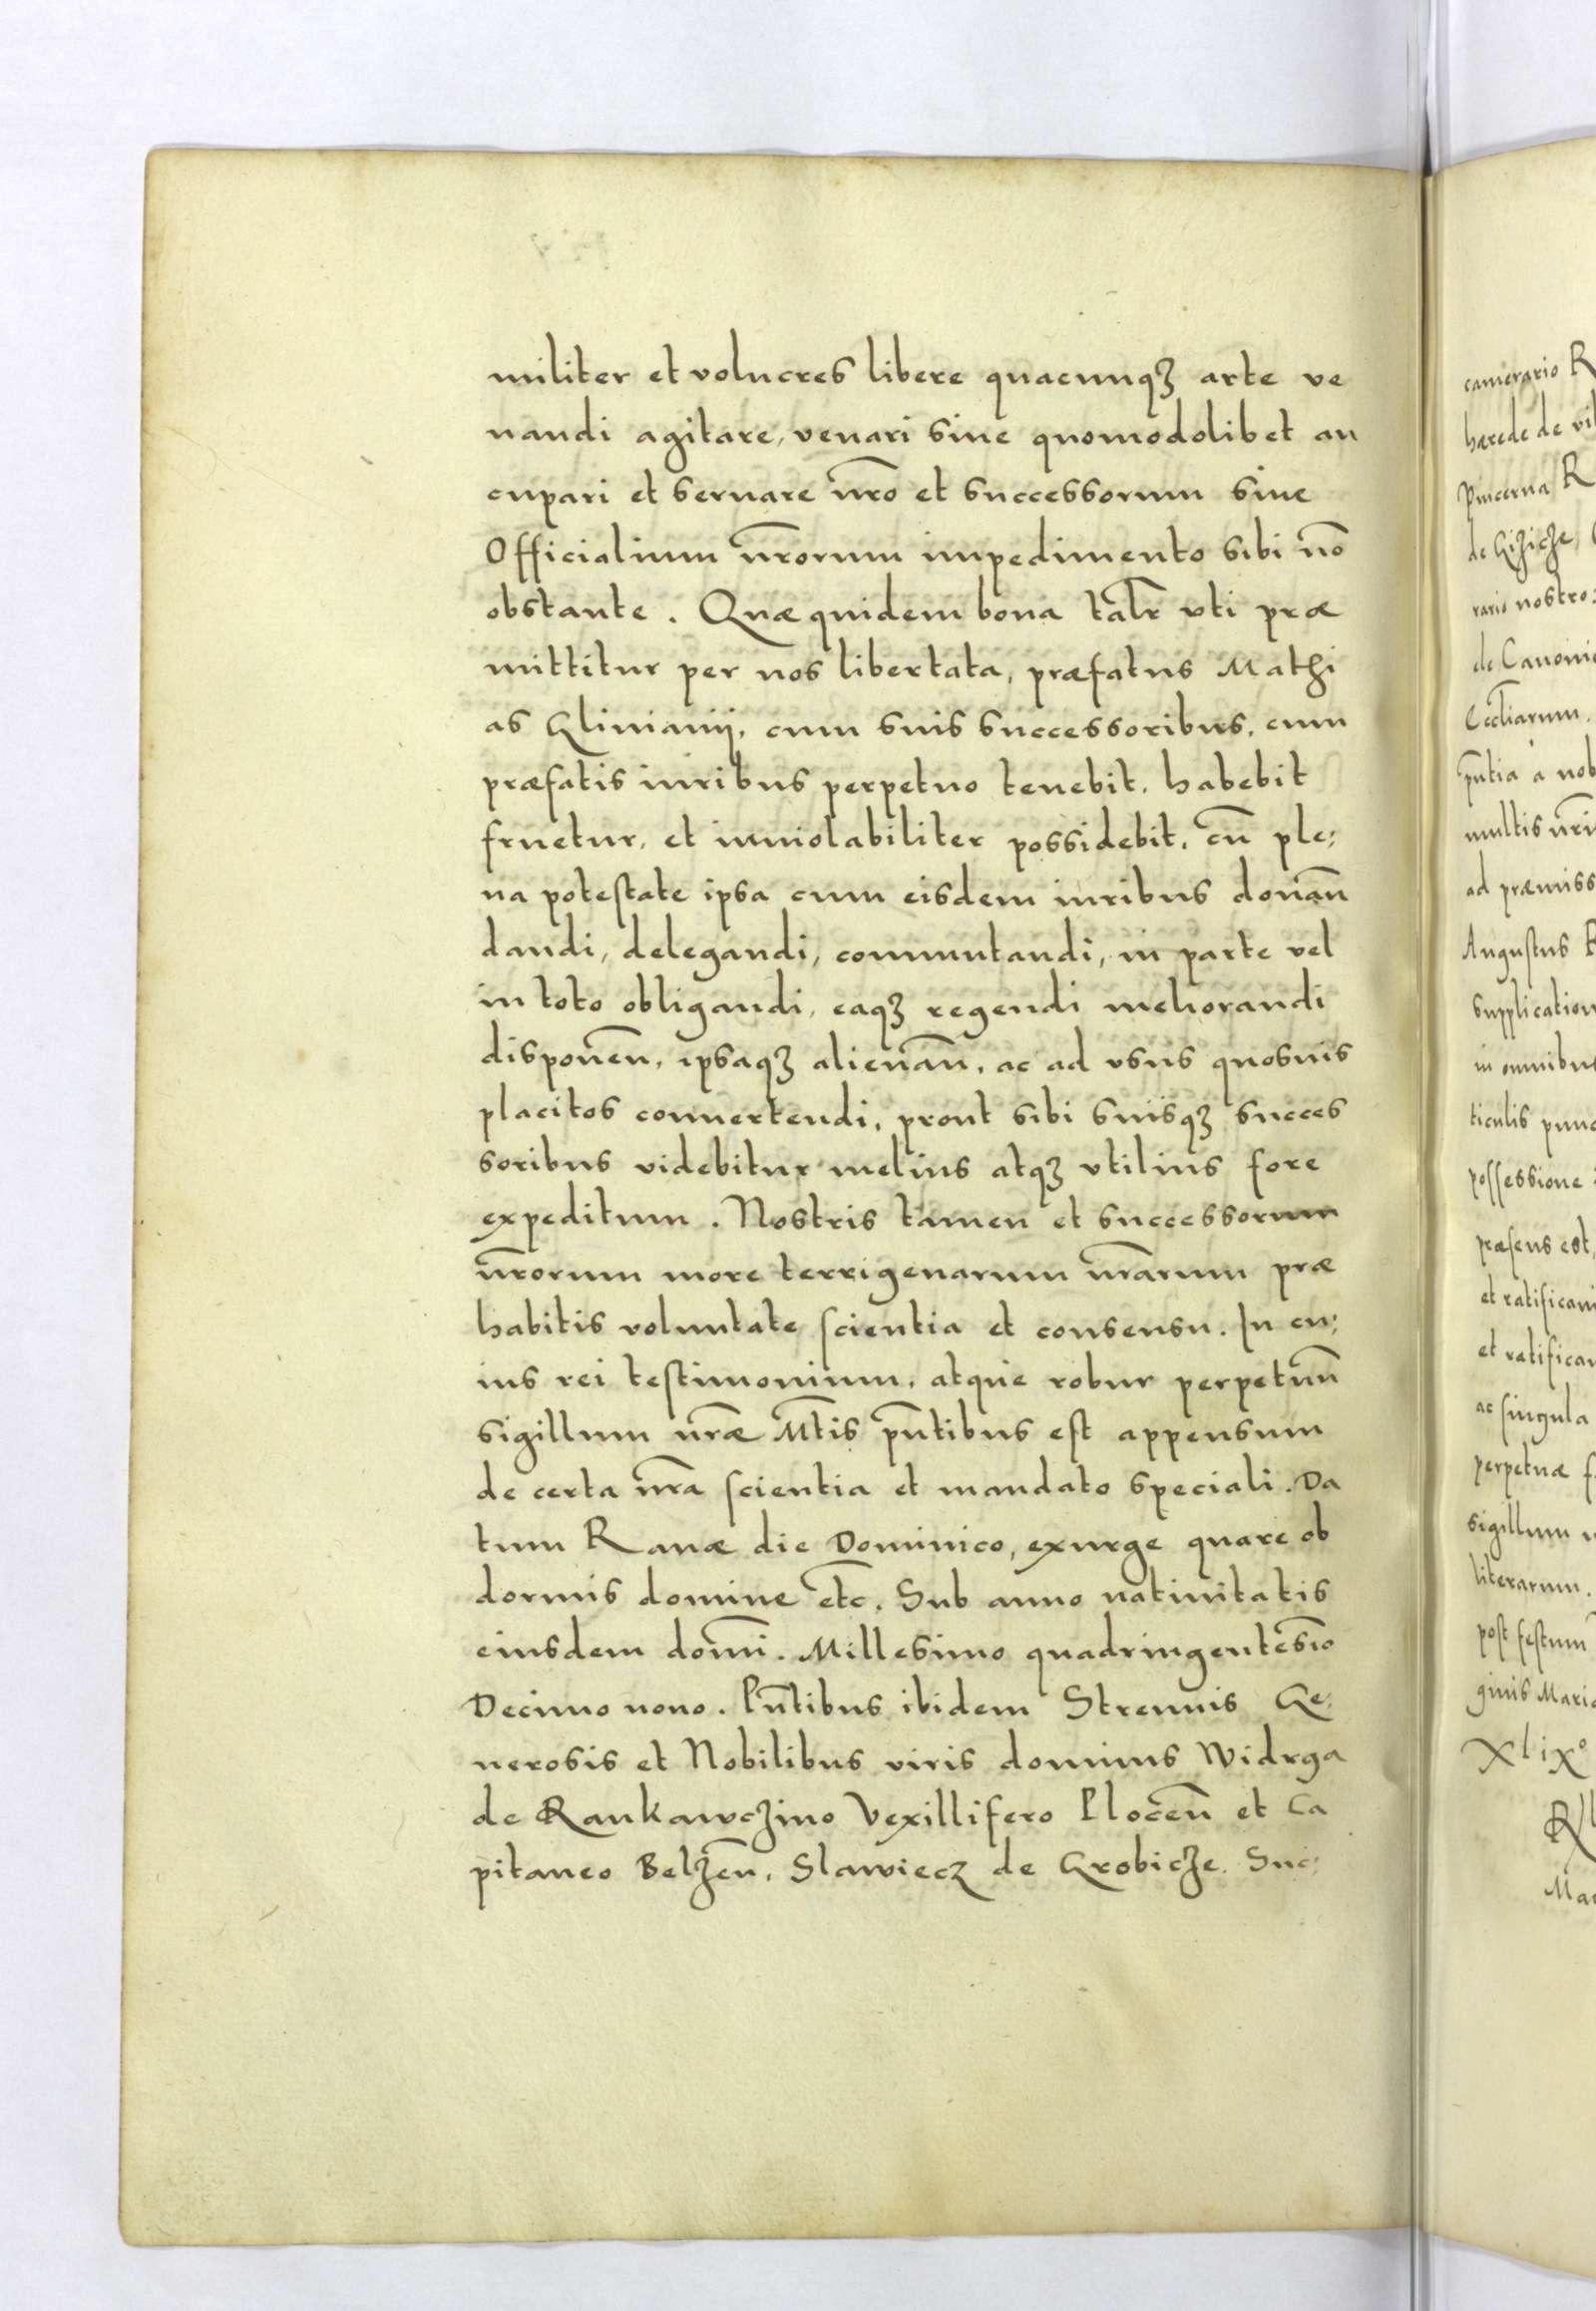 militer et volucres libere quacunqꝫ arte ve
nandi agitare, venari siue quomodolibet au
cupari et seruare nr̃o et successorum siue
Officialium nr̃orum impedimento sibi nõ
obstante. Quæ quidem bona talr̃ vti præ
mittitur per nos libertata, præfatus Mathi
as Gliniany, cum suis successoribus, cum
præfatis iuribus perpetuo tenebit. habebit
fruetur, et inuiolabiliter possidebit, cũ ple:
na potestate ipsa cum eisdem iuribus donan̄
dandi, delegandi, commutandi, in parte vel
in toto obligandi, eaqꝫ regendi meliorandi
disponen̄, ipsaqꝫ alienan̄, ac ad vsus quosuis
placitos conuertendi, prout sibi suisqꝫ succes
soribus videbitur melius atqꝫ vtilius fore
expeditum. Nostris tamen et successorum
nr̃orum more terrigenarum nr̃arum præ
habitis voluntate scientia et consensu. In cu:
ius rei testimonium, atque robur perpetuũ
sigillum nr̃æ Mt̃is pñtibus est appensum
de certa nr̃a scientia et mandato speciali. Da
tum Rauæ die Dominico, exurge quare ob
dormis domine etc̃. Sub anno natiuitatis
eiusdem domĩ. Millesimo quadringentesĩo
Decimo nono. Pñtibus ibidem Strenuis Ge:
nerosis et Nobilibus viris dominus Widrga
de Rankawczino Vexillifero Plocen̄ et Ca
pitaneo Belzen̄, Slawiecz de Grobicze. Suc:
camerario R
hærede de vil
Pincerna R
de Giżicze,
rario nostro:
de Canonic
Eccl̃iarum.
pñtia à nob
multis nr̃i
ad præmiss
Augustus R
supplication
in omnibus
ticulis punc
possessione
præsens est,
et ratificani
et ratifican
ac singula
perpetuæ f
sigillum n
literarum.
post festum
ginis Mariæ
Xlixº
Ma